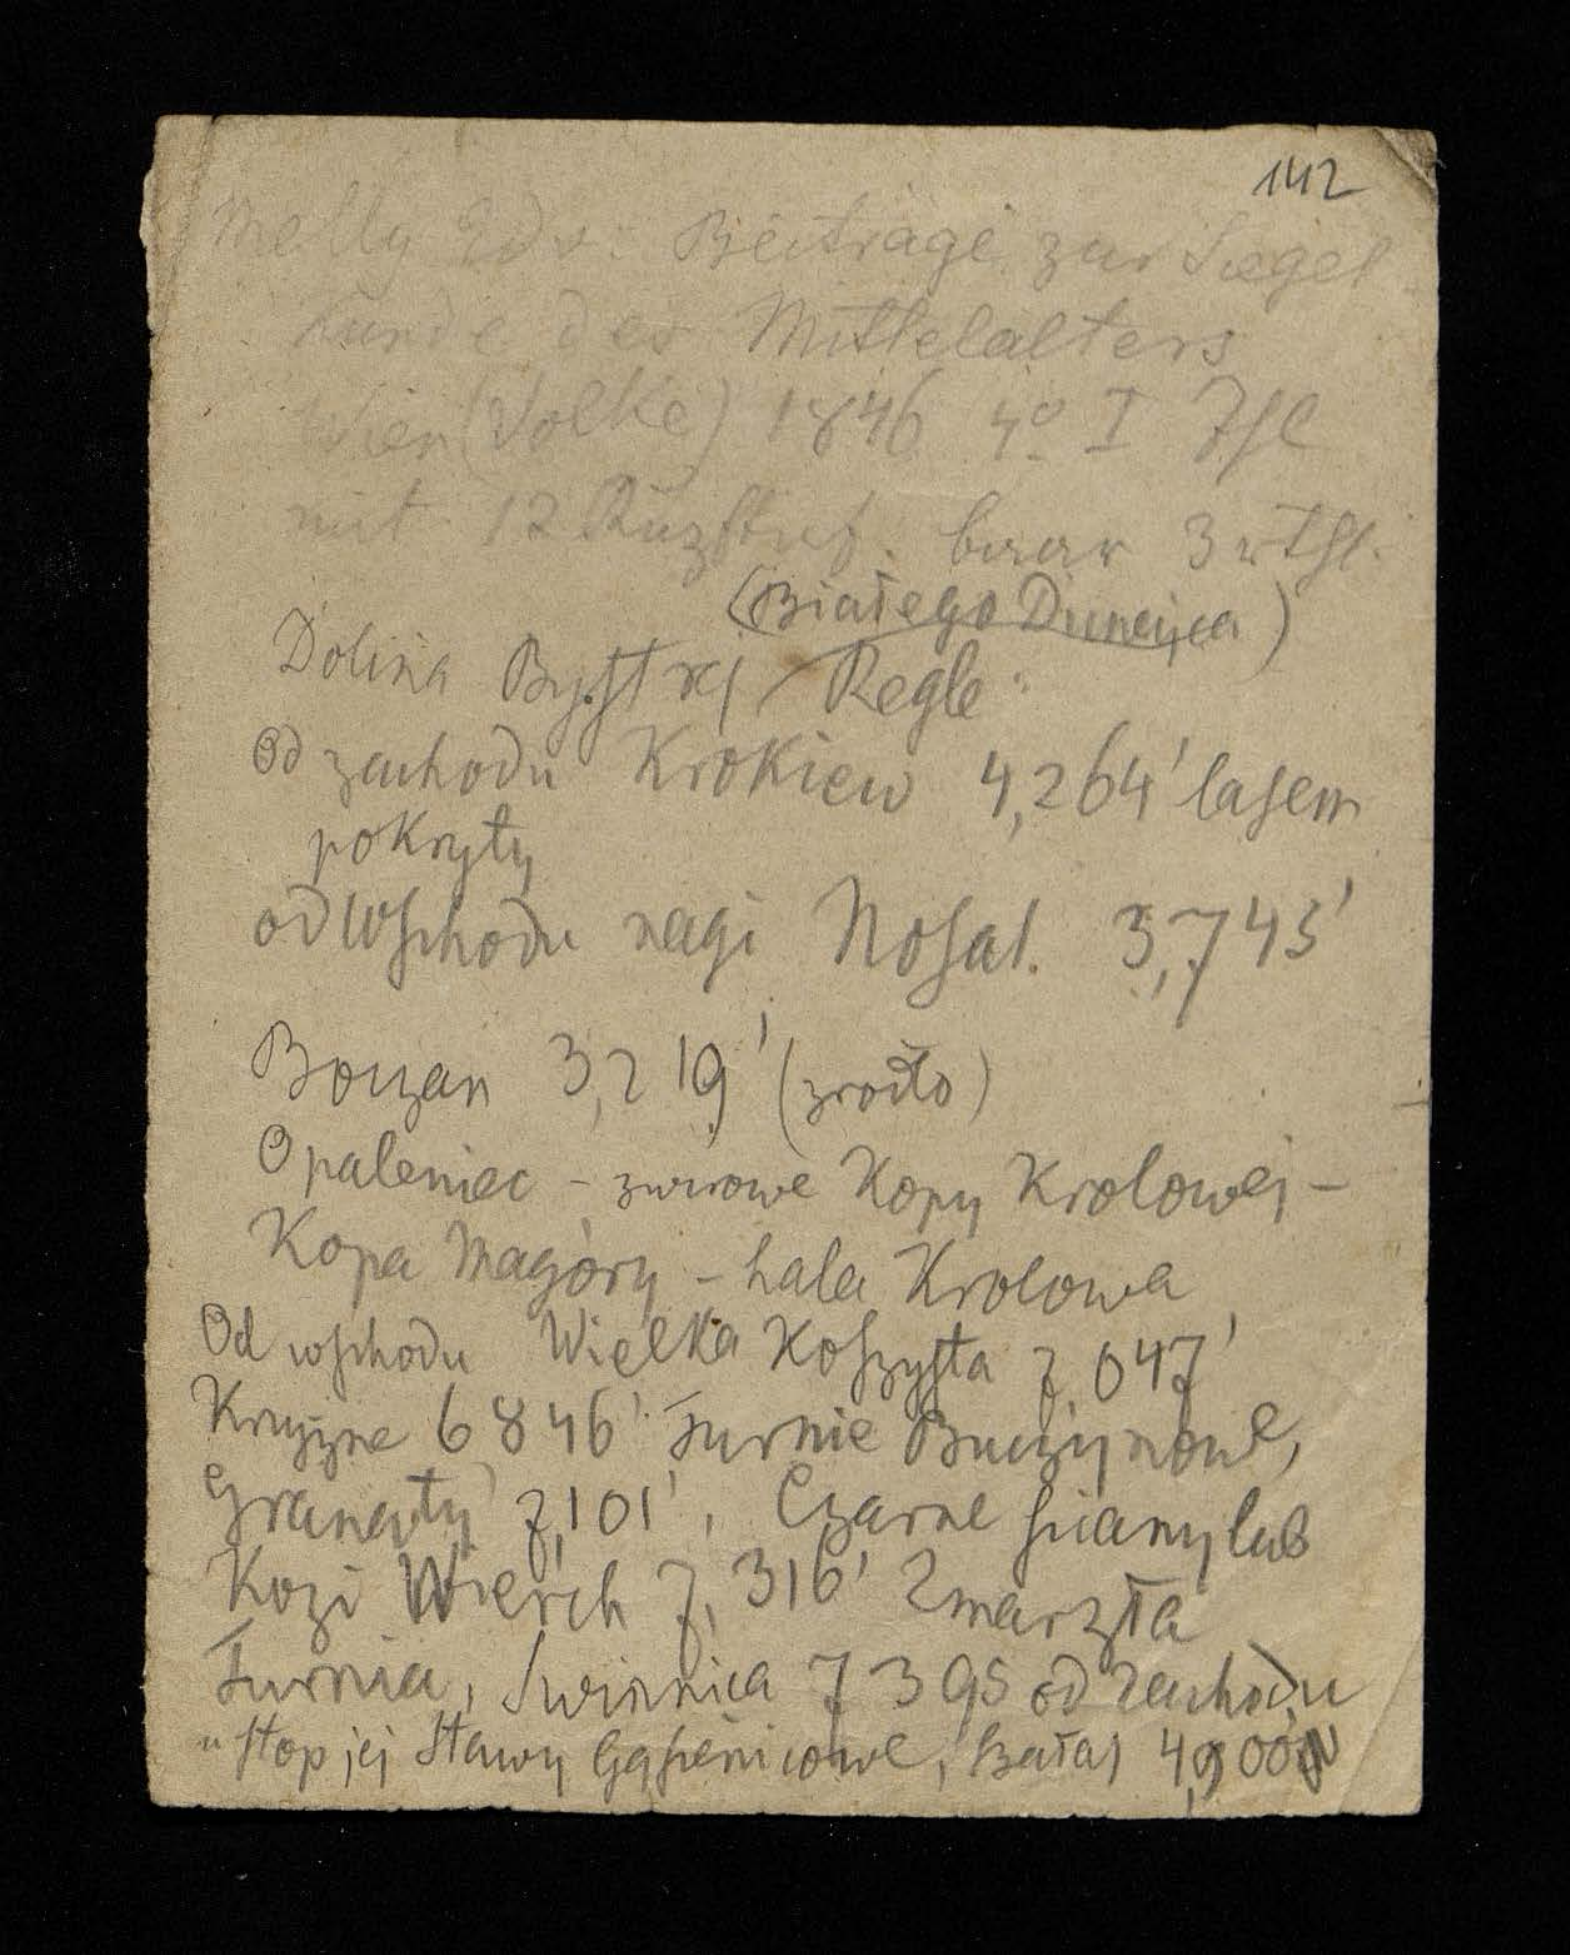 142
Melly Edv: Beiträge zur Siegel
kunde des Mittelalters
Wien (Volke) 1846 4º I Thl
mit 12 baar 3 rthl.
(Białego Dunajca)
Dolina Bystrej Regle
Od zachodu Krokiew 4,264' lasem
pokryty
od wschodu nagi Nosal. 3,743'
Boczan 3,219' (zrodło)
Opaleniec – zwirowe Kopy Krolowej –
Kopa Magóry – hala Krolowa
Od wschodu Wielka Koszysta 7,047'
Krzyżne 6846' Turnie Buczynowe,
Granaty 7,101', Czarne sciany lub
Kozi Wierch 7,316' Zmarzła
Turnia, Swinnica 7395 od zachodu
u stop jej Stawy Gąsienicowe,